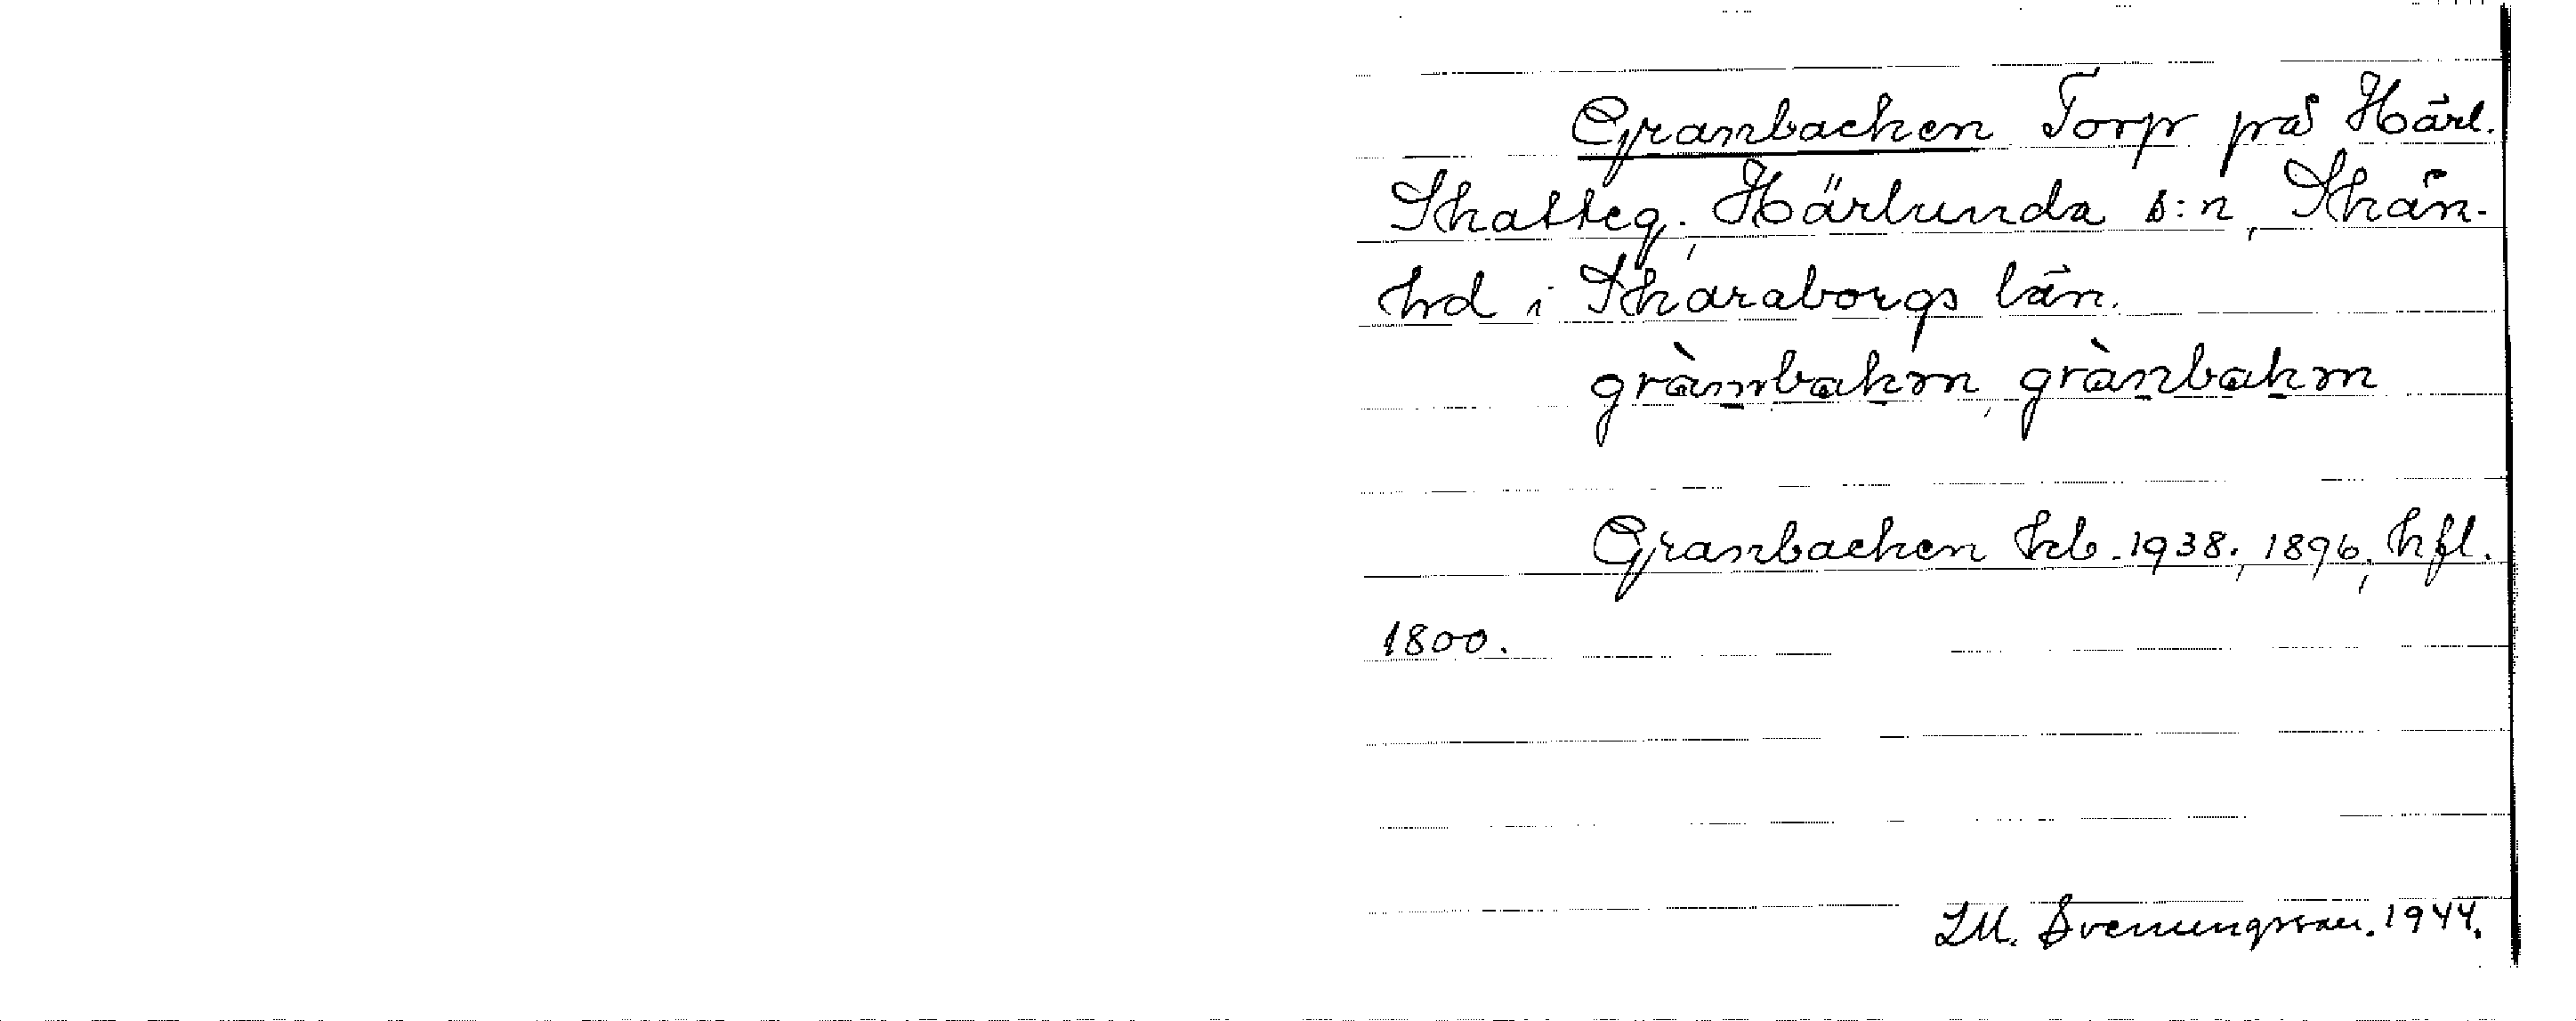 Granbacken Torp på Härl.
Skatteg.; Härlunda s:n, Skån.
hd i Skaraborgs län.
gràmbakɐn, grànbakɐn
Granbacken kb. 1938.; 1896.; hfl.
1800.
I.M. Svenungsson. 1944.